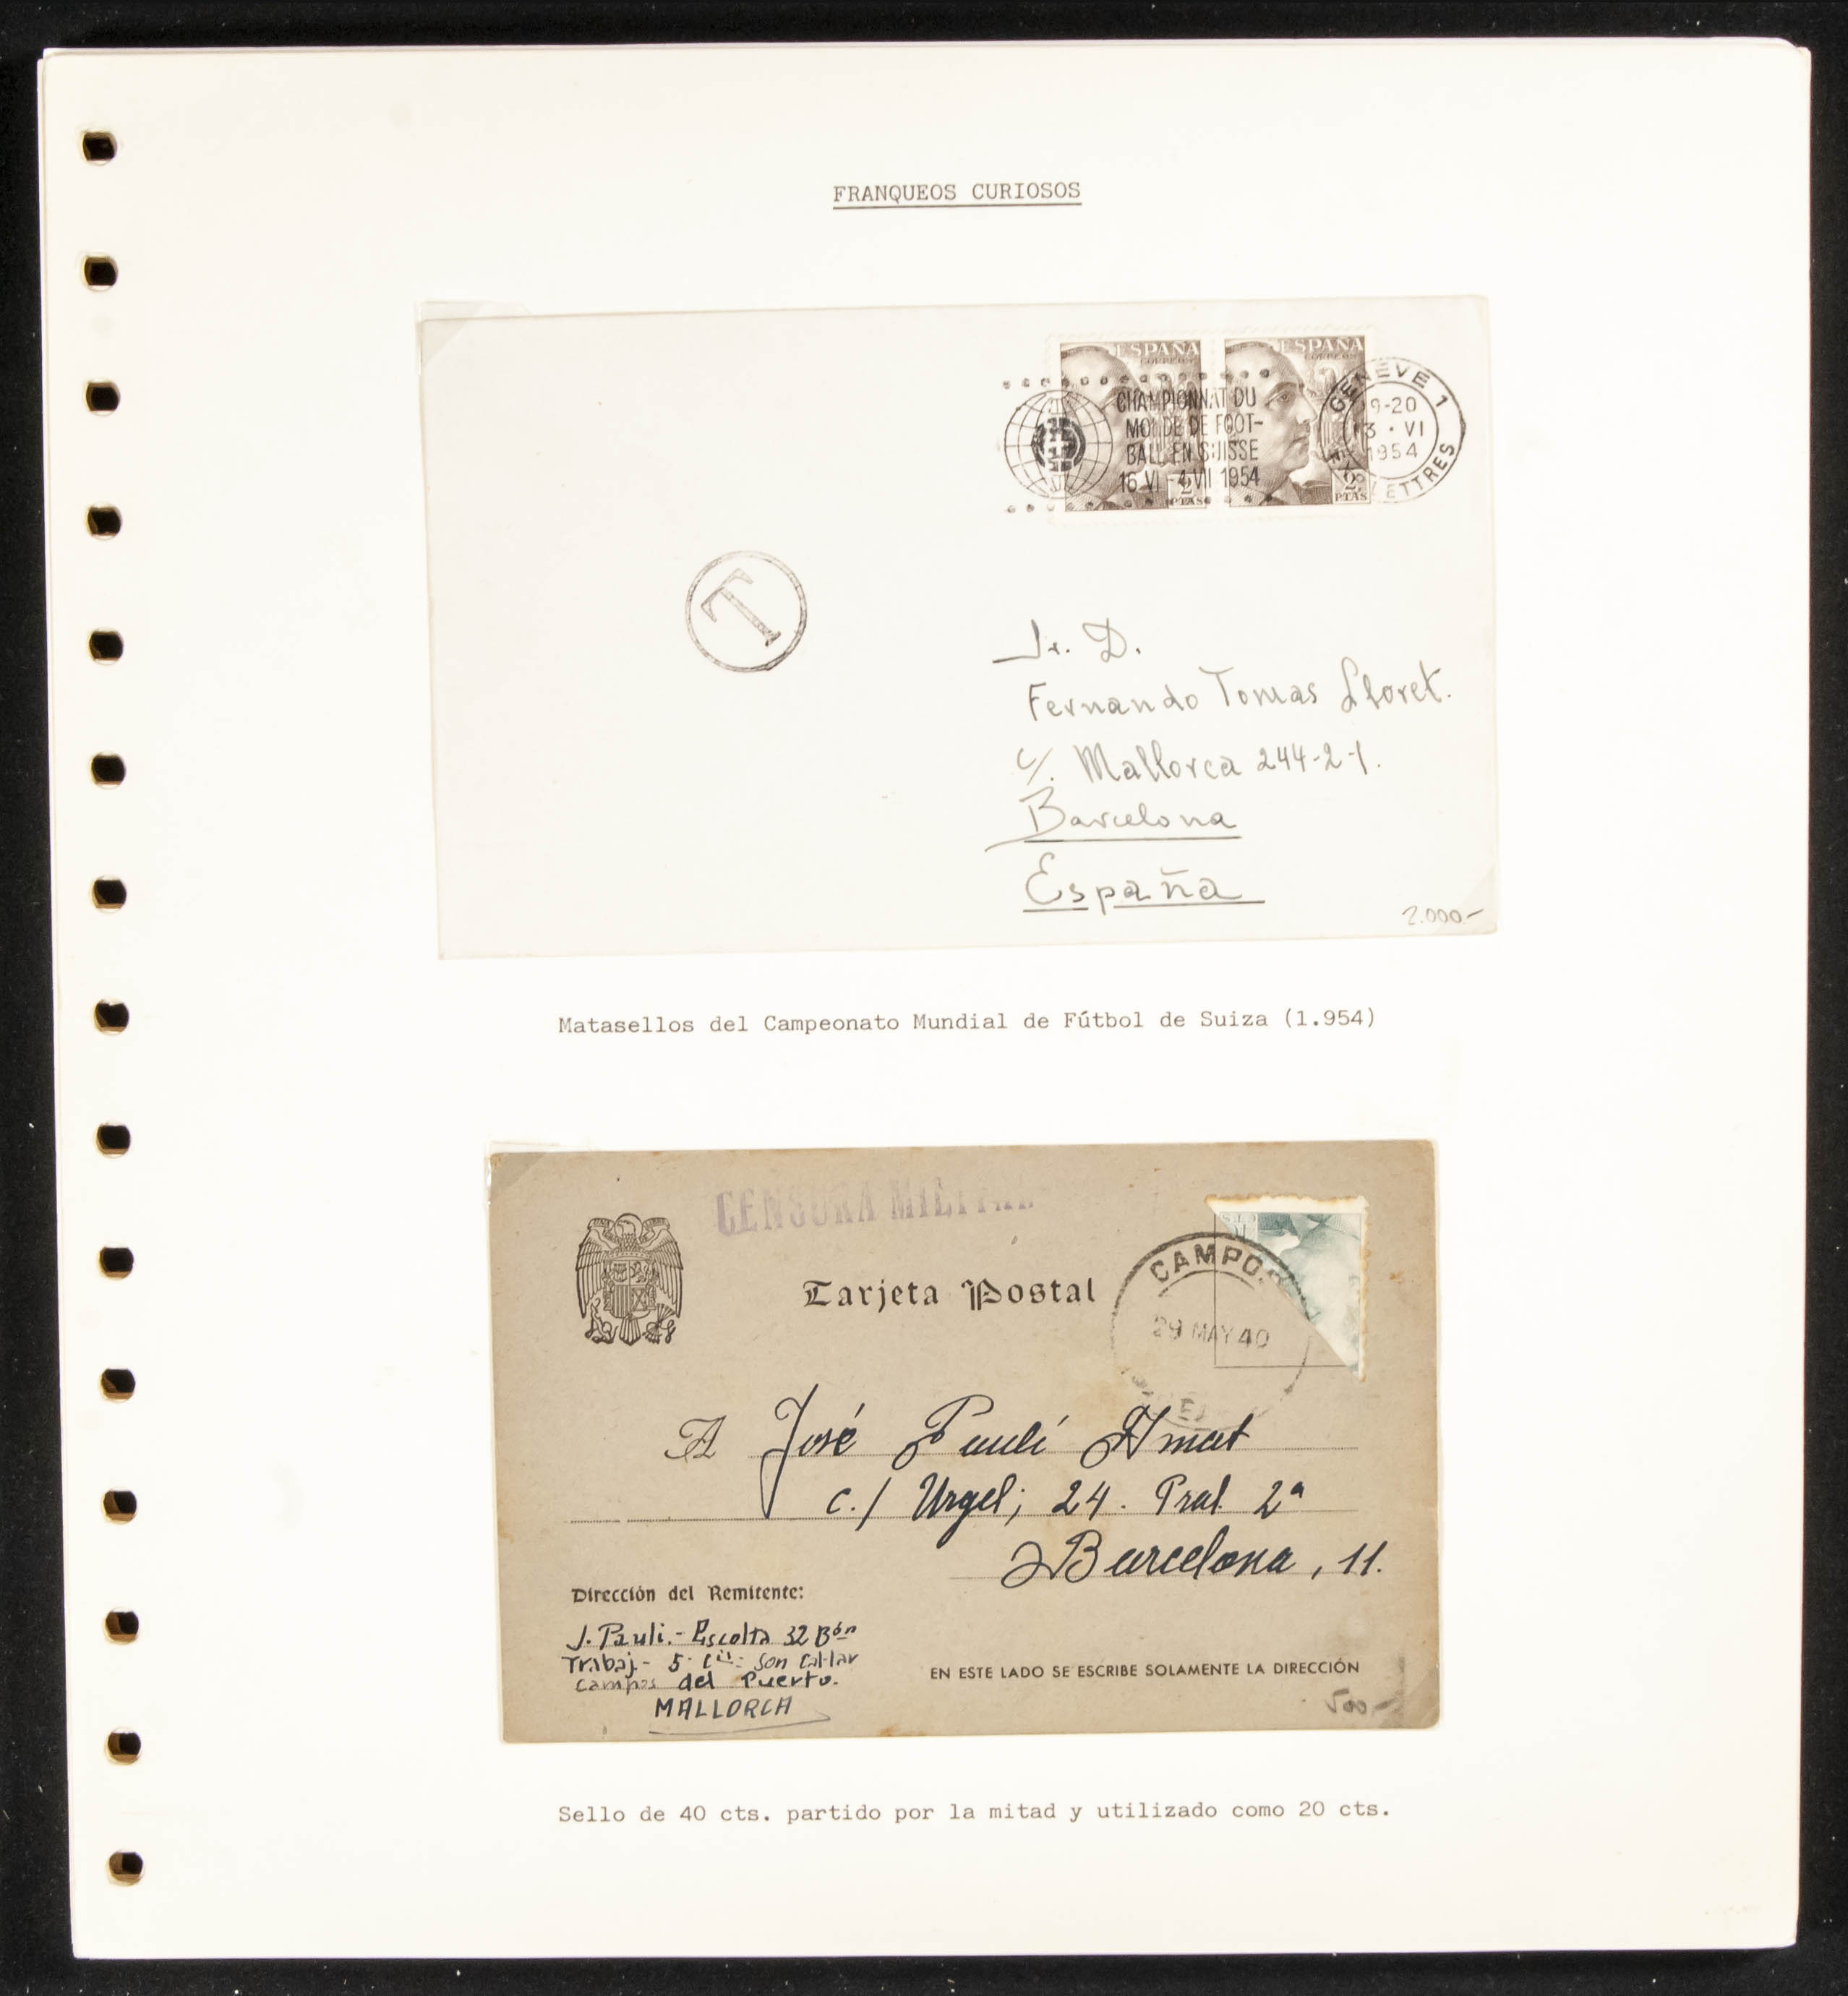 FRANQUEOS CURIOSOS
ESPAÑA
CORREOS
ESPAÑA
CORREOS
CHAMPIONNAT DU
MONDE DE FOOT-
BALL EN SUISSE
16 VI - 4 VII 1954
2
PTAS
2
PTAS
GENÈVE 1
LETTRES
9-20
3 · VI
1954
T
Sr. D.
Fernando Tomas Lloret.
c/. Mallorca 244-2-1.
Barcelona
España
2.000-
Matasellos del Campeonato Mundial de Fútbol de Suiza (1.954)
CENSURA MILITAR
CTS
Tarjeta Postal
CAMPOS
29 MAY 40
A José Paulí Amat
c./ Urgel; 24. Pral. 2ª
Barcelona, 11.
Dirección del Remitente:
J. Pauli.- Escolta 32 Bón
Trabaj- 5 Cía: Son Catlar
Campos del Puerto.
MALLORCA
EN ESTE LADO SE ESCRIBE SOLAMENTE LA DIRECCIÓN
500-
Sello de 40 cts. partido por la mitad y utilizado como 20 cts.